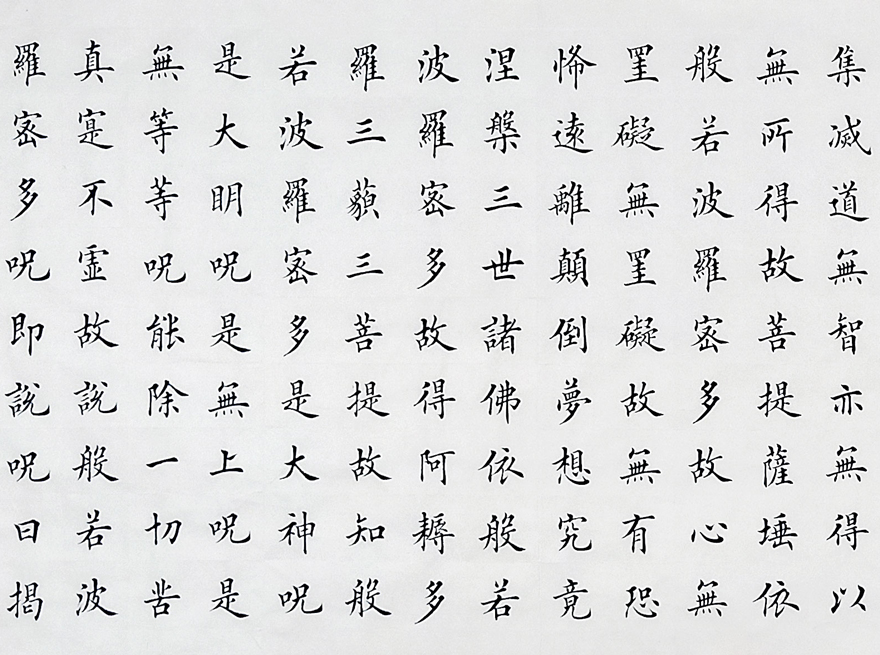 集滅道無智亦無得以
無所得故菩提薩埵依
般若波羅蜜多故心無
罣礙無罣礙故無有恐
怖遠離顛倒夢想究竟
涅槃三世諸佛依般若
波羅蜜多故得阿耨多
羅三藐三菩提故知般
若波羅蜜多是大神呪
是大明呪是無上呪是
無等等呪能除一切苦
真寔不虛故說般若波
羅蜜多呪即說呪曰揭